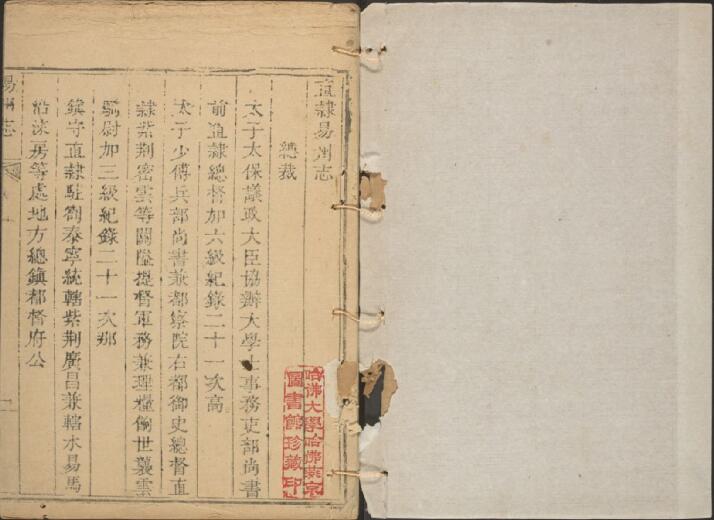 直隸易州志
總裁
太子太保議政大臣協辦大學士事務吏部尚書
前直隸總督加六級紀錄二十一次高
太子少傅兵部尚書兼都察院右都御史總督直
隸紫荆密雲等關隘提督軍務兼理糧餉世襲雲
騎尉加三級紀錄二十一次那
鎮守直隸駐劄泰寧統轄紫荆廣昌兼轄水易馬
沿涿房等處地方總鎮都督府公
易州志
一
哈佛大學哈佛燕京
圖書館珍藏印